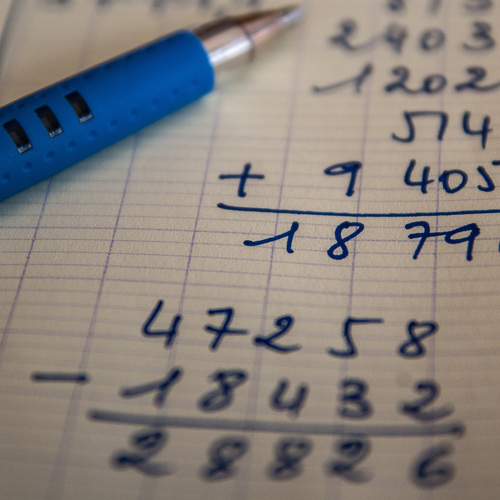 2403
1202
514
+ 9 405
18 79
47258
- 18432
28826